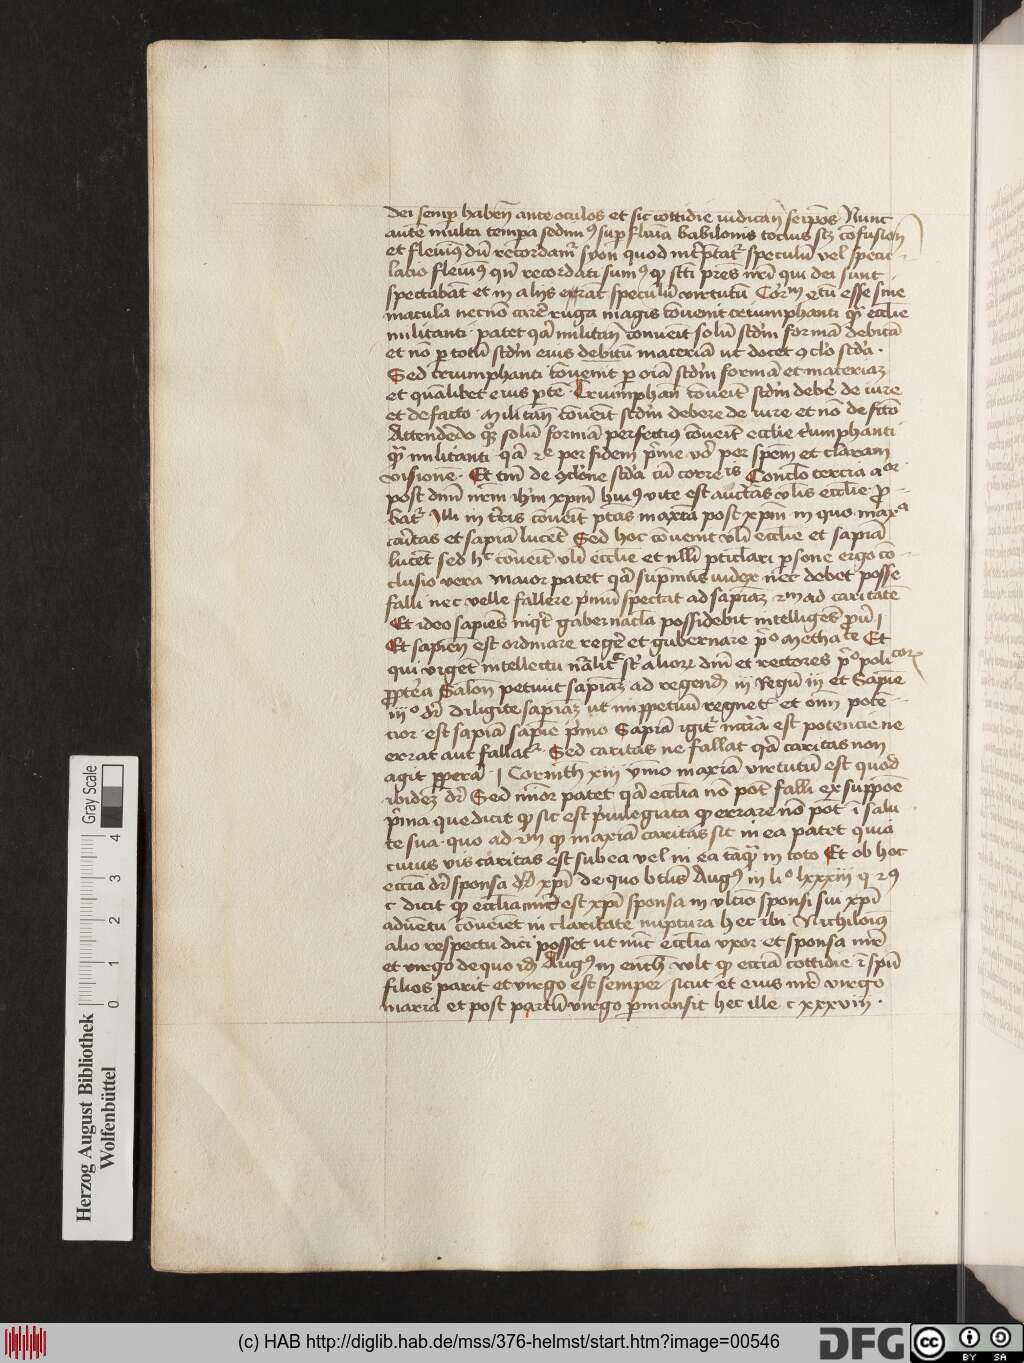 dei semp habeñ ante oculos et sic cottidie iudicañ seipōs Nunc
autē multa tempa sedimꝰ sup flu͞ia babilonis tocius scꝫ cōfusion
et fleuimꝰ dū recordam̄ syon quod int̄p̄tat speculū vel specu
lacio fleuimꝰ qn̄ recordati sumꝰ qꝫ sc̄ti pr̄es nr̄i qui dei sunt
spectabāt et in alijs erāt speculū virtutū esse sine
macula necnō carē ruga magis cōuenit triumphanti qͣ eccl̄ie
militanti patet qͣ militañ conuenit solū scd̄m formā debitā
et nō p totū scd̄m eius debitū materiā ut docet ꝯcl̄o scd̄a
Sed triumphanti cōuenit p oīa scd̄m formā et materiaꝫ
et qūalibet eius p̄tē Triumphañ cōuenit scd̄m debē de iure
et de facto militañ cōuenit scd̄m debere de iure et nō de fc̄to
Attendēdo qꝫ solū formā perfectiꝰ cōuenit eccl̄ie t̄umphanti
qͣ militanti qͣ per fidem p̄me vō per spem et claram
visionē Et tm̄ de ꝯcl̄one scd̄a cū Concl̄o tercia
post dn̄m nr̄m ih̄m xp̄m huiꝰ vite est auct̄as vl̄is eccl̄ie p
bat Illi in t̄ris cōuenit p̄tas maxīa post xp̄m in quo maxᵃ
caritas et sapīa lucet Sed hoc conuenit vl̄i eccl̄ie et sapīa
lucet sed hͨ cōuenit vl̄i eccl̄ie et nll̄i pticlari psone ergo cō
clusio vera maior patet qͣ sup̄mus iudex nec debet posse
falli nec velle fallere p̄mū spectat ad sapīaꝫ ad caritatē
Et ideo sapiens gubernac̄la possidebit intelligēs prou̅ i
Et sapien̄ est ordinare regē et gubernare pº metha Et
qui viget intellectu nāliť aliorꝫ dn̄i et rectores pº poli
ꝓpterea Salon̄ petiuit sapīaꝫ ad regend iij Regū iij et Sapie
diligite sapīaꝫ ut impꝑetuū regnet et omī potē
cior est sapīa sapie pͥmo Sapīa igit potencie ne
errat aut fallat Sed caritas ne fallat qͣ caritas non
agit ꝑperā i Corinth xiij maxīa virtutū est quod
ibideꝫ dr̄ Sed mīor patet qͣ eccl̄ia nō pot falli ex suppoē
p̄ma que dicit qꝫ sic est p̄uilegiata qꝫ errare nō pot ī salu
te sua quo ad qꝫ maxīa caritas sit in ea patet quia
cuius vis caritas est sub ea vel in ea tāqͣ in toto Et ob hoc
eccīa dr̄ sponsa xp̄i de quo btūs Augꝰ in liº lxxxiij q
c dicit qꝫ eccl̄ia est xp̄i sponsa in vltiō sponsi sui xp̄i
aduentu cōueniet in claritate nuptura hec ibi Nichilomiꝰ
alio respectu dici posset ut nūc eccl̄ia vxor et sponsa mr̄
et virgo de quo idē Augꝰ in ench vult qꝫ eccīa cottidie ī spū
filios parit et virgo est semper sicut et eius mr̄ virgo
maria et post partū virgo p̄mansit hec ille c xxxviij
Gray Scale
4 3 2 1 0
Herzog August Bibliothek
Wolfenbüttel
(c) HAB http://diglib.hab.de/mss/376-helmst/start.htm?image=00546
DFG
cc BY SA